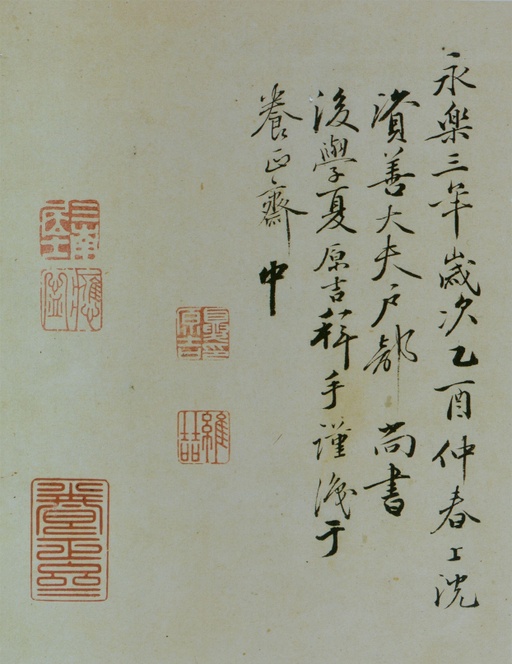 永樂三年歲次乙酉仲春上浣
資善大夫戶部尚書
後學夏原吉拜手謹識于
養正齋中
維喆
養正齋